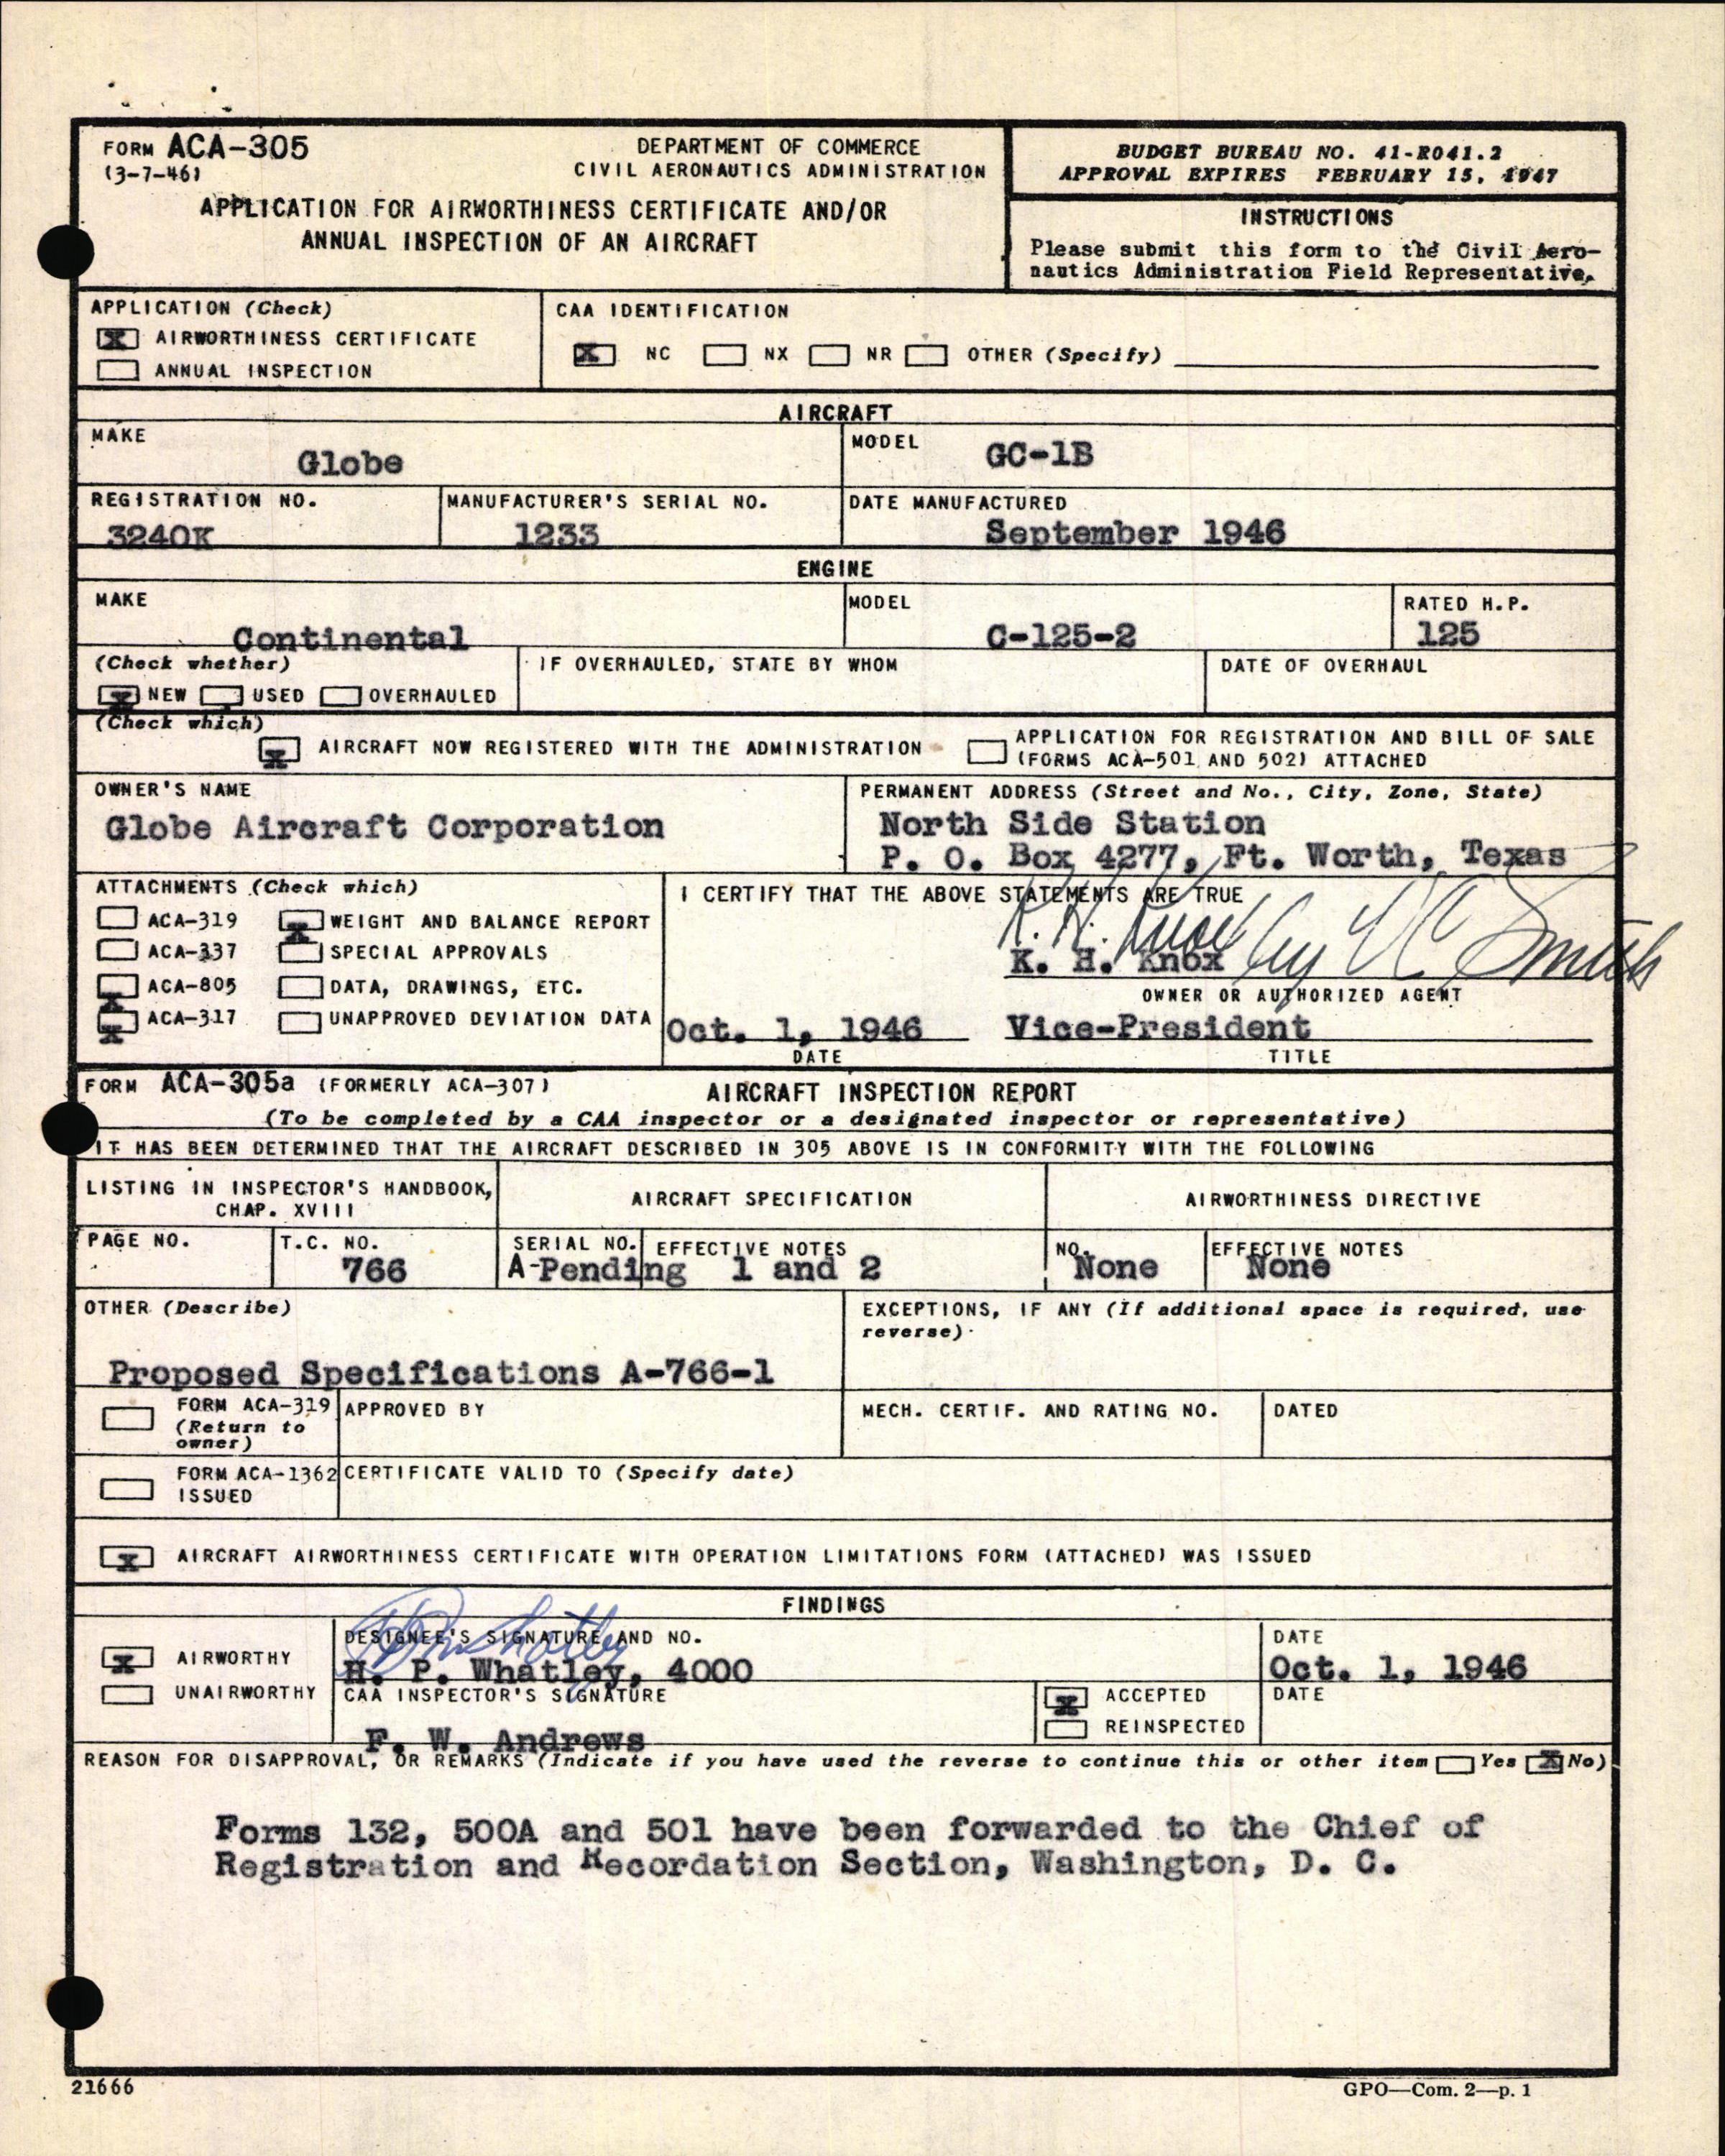 FORM ACA-305
(3-7-46)
DEPARTMENT OF COMMERCE
CIVIL AERONAUTICS ADMINISTRATION
APPLICATION FOR AIRWORTHINESS CERTIFICATE AND/OR
ANNUAL INSPECTION OF AN AIRCRAFT
BUDGET BUREAU NO. 41-R041.2
APPROVAL EXPIRES FEBRUARY 15, 1947
INSTRUCTIONS
Please submit this form to the Civil Aero-
nautics Administration Field Representative.
APPLICATION (Check)
X AIRWORTHINESS CERTIFICATE
ANNUAL INSPECTION
CAA IDENTIFICATION
X NC NX NR OTHER (Specify)
AIRCRAFT
MAKE
Globe
MODEL
GC-1B
REGISTRATION NO.
3240K
MANUFACTURER'S SERIAL NO.
1233
DATE MANUFACTURED
September 1946
ENGINE
MAKE
Continental
MODEL
C-125-2
RATED H.P.
125
(Check whether)
X NEW USED OVERHAULED
IF OVERHAULED, STATE BY WHOM
DATE OF OVERHAUL
(Check which)
X AIRCRAFT NOW REGISTERED WITH THE ADMINISTRATION
APPLICATION FOR REGISTRATION AND BILL OF SALE
(FORMS ACA-501 AND 502) ATTACHED
OWNER'S NAME
Globe Aircraft Corporation
PERMANENT ADDRESS (Street and No., City, Zone, State)
North Side Station
P. O. Box 4277, Ft. Worth, Texas
ATTACHMENTS (Check which)
ACA-319 X WEIGHT AND BALANCE REPORT
ACA-337 SPECIAL APPROVALS
X ACA-805 DATA, DRAWINGS, ETC.
X ACA-317 UNAPPROVED DEVIATION DATA
I CERTIFY THAT THE ABOVE STATEMENTS ARE TRUE
K. H. Knox by V C Smith
K. H. Knox
OWNER OR AUTHORIZED AGENT
Oct. 1, 1946 Vice-President
DATE TITLE
FORM ACA-305a (FORMERLY ACA-307) AIRCRAFT INSPECTION REPORT
(To be completed by a CAA inspector or a designated inspector or representative)
IT HAS BEEN DETERMINED THAT THE AIRCRAFT DESCRIBED IN 305 ABOVE IS IN CONFORMITY WITH THE FOLLOWING
LISTING IN INSPECTOR'S HANDBOOK,
CHAP. XVIII
AIRCRAFT SPECIFICATION
AIRWORTHINESS DIRECTIVE
PAGE NO.
T.C. NO.
766
SERIAL NO. EFFECTIVE NOTES
A-Pending 1 and 2
NO.
None
EFFECTIVE NOTES
None
OTHER (Describe)
Proposed Specifications A-766-1
EXCEPTIONS, IF ANY (If additional space is required, use
reverse)
FORM ACA-319
(Return to
owner)
APPROVED BY
MECH. CERTIF. AND RATING NO.
DATED
FORM ACA-1362
ISSUED
CERTIFICATE VALID TO (Specify date)
X AIRCRAFT AIRWORTHINESS CERTIFICATE WITH OPERATION LIMITATIONS FORM (ATTACHED) WAS ISSUED
FINDINGS
X AIRWORTHY
UNAIRWORTHY
DESIGNEE'S SIGNATURE AND NO.
HP Whatley
H. P. Whatley, 4000
DATE
Oct. 1, 1946
CAA INSPECTOR'S SIGNATURE
F. W. Andrews
X ACCEPTED
REINSPECTED
DATE
REASON FOR DISAPPROVAL, OR REMARKS (Indicate if you have used the reverse to continue this or other item Yes X No)
Forms 132, 500A and 501 have been forwarded to the Chief of
Registration and Recordation Section, Washington, D. C.
21666
GPO—Com. 2—p. 1